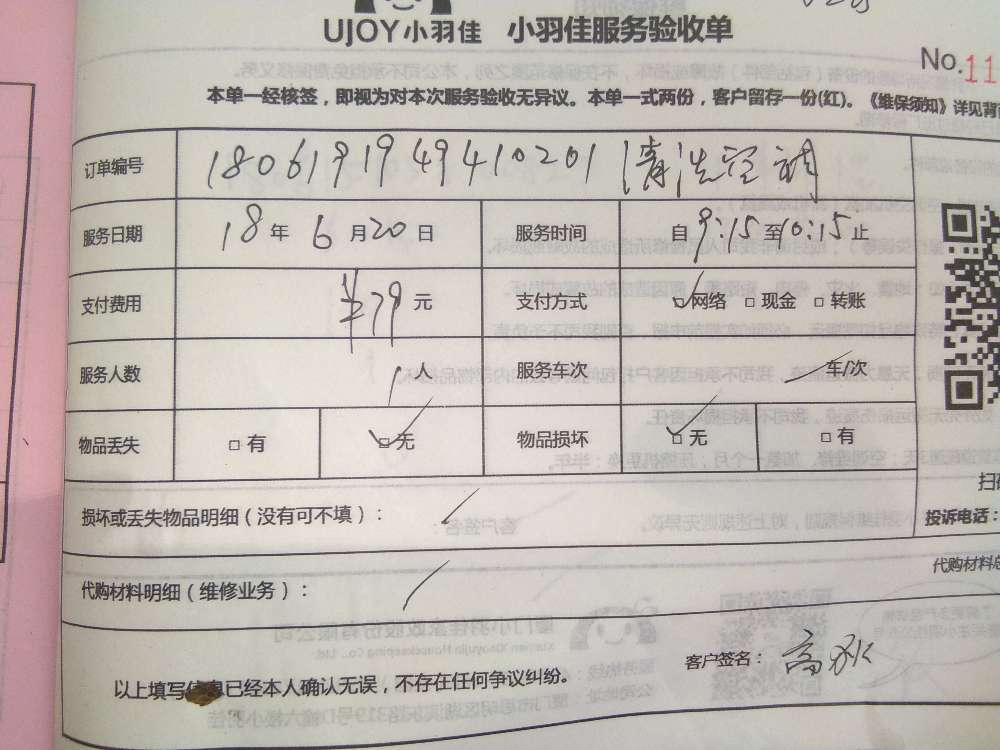 UJOY小羽佳 小羽佳服务验收单
No.11
本单一经核签，即视为对本次服务验收无异议。本单一式两份，客户留存一份(红)。《维保须知》详见背
订单编号 1806191949410201 清洗空调
服务日期 18年6月20日 服务时间 自9:15至10:15止
支付费用 ¥79元 支付方式 网络 现金 转账
服务人数 1人 服务车次 车/次
物品丢失 有 无 物品损坏 无 有
扫
损坏或丢失物品明细（没有可不填）：
投诉电话：
代购材料明细（维修业务）：
代购材料
客户签名：高
以上填写信息已经本人确认无误，不存在任何争议纠纷。